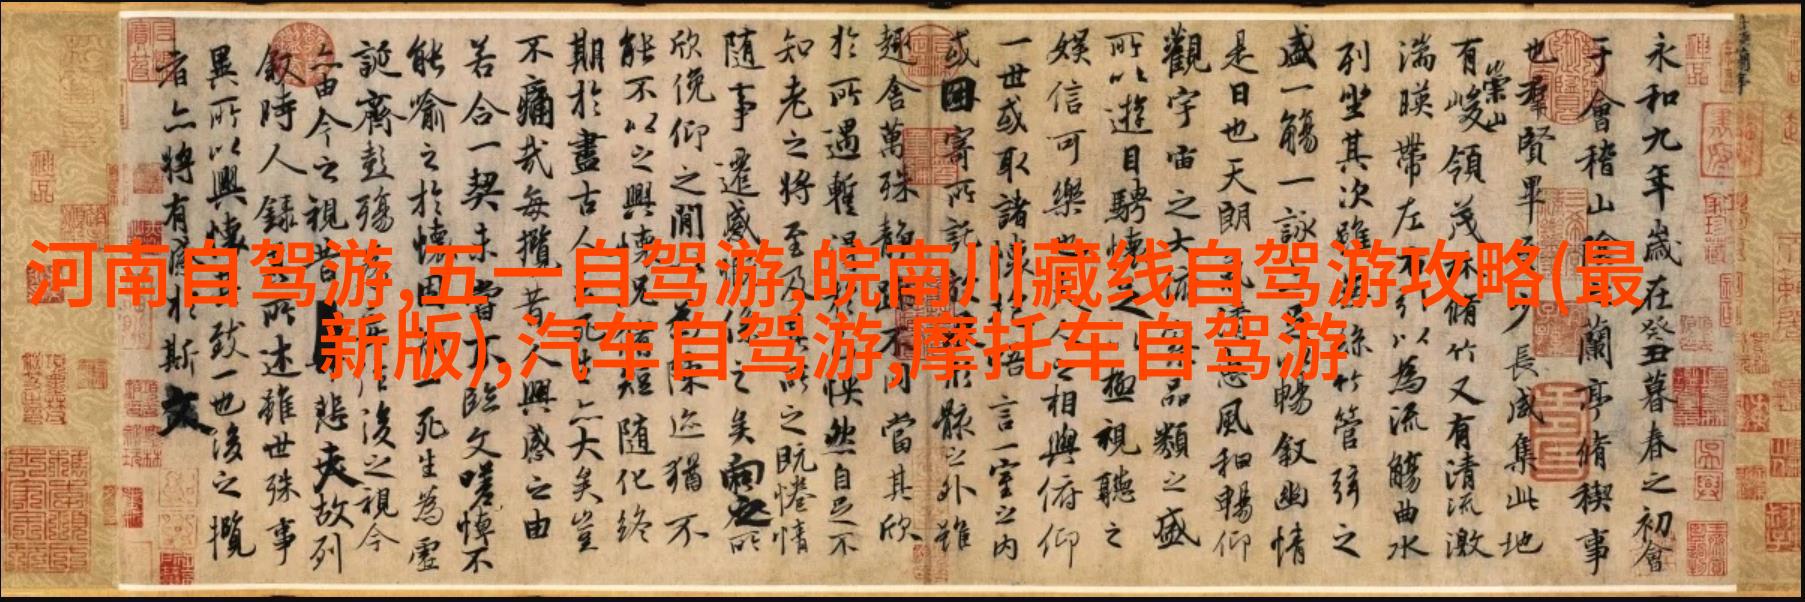 河南自驾游,五一自驾游,皖南川藏线自驾游攻略(最
新版),汽车自驾游,摩托车自驾游
永和九年歲在癸丑暮春之初會
于會稽山陰之蘭亭脩稧事
也羣賢畢至少長咸集此地
有崇山峻領茂林脩竹又有清流激
湍暎帶左右引以為流觴曲水
列坐其次雖無絲竹管弦之
盛一觴一詠亦足以暢叙幽情
是日也天朗氣清惠風和暢仰
觀宇宙之大俯察品類之盛
所以遊目騁懷足以極視聽之
娛信可樂也夫人之相與俯仰
一世或取諸懷抱悟言一室之內
或因寄所託放浪形骸之外雖
趣舍萬殊靜躁不同當其欣
於所遇暫得於己怏然自足不
知老之將至及其所之既惓情
隨事遷感慨係之矣向之所
欣俛仰之閒以為陳迹猶不
能不以之興懷況脩短隨化終
期於盡古人云死生亦大矣豈
不痛哉每攬昔人興感之由
若合一契未嘗不臨文嗟悼不
能喻之於懷固知一死生為虛
誕齊彭殤為妄作後之視今
亦由今之視昔悲夫故列
叙時人錄其所述雖世殊事
異所以興懷其致一也後之攬
者亦將有感於斯文